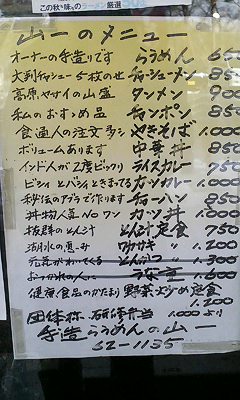 この秋も味のラーメン厳選
山一のメニュー
オーナーの手造りです らうめん 650
大判チャーシュー5枚のせ チャーシューメン 850
高原ヤサイの山盛 タンメン 900
私のおすすめ品 チャンポン 850
食通人の注文多シ やきそば 1.000
ボリュームあります 中華丼 850
インド人が2度ビックリ ライスカレー 750
ビシィとバシィときまってる カツカレー 1.000
秘伝のアブラで作ります チャーハン 850
丼物人気Noワン カツ丼 1.000
抜群のとん汁 とん汁定食 750
湖水の恵み ワカサギ 〃 1.200
元気がわいてくる とんかつ 〃 1.300
おつかれの人に うな重 1.600
健康食品のかたまり 野菜炒め定食
1.200
団体様 研修弁当 1.000より
手造らうめんの山一
62-1135